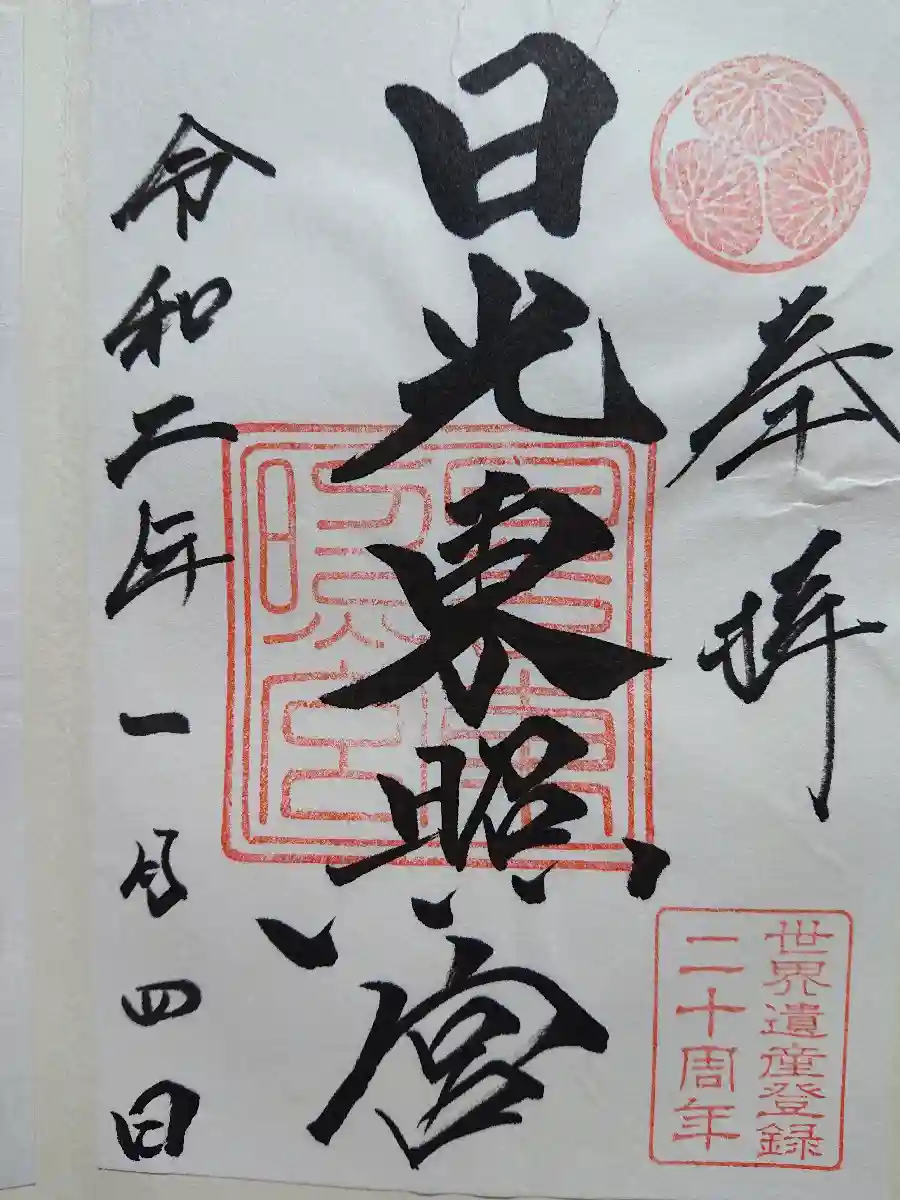 奉拝
日光東照宮
令和二年一月四日
東照宮
世界遺産登録
二十周年